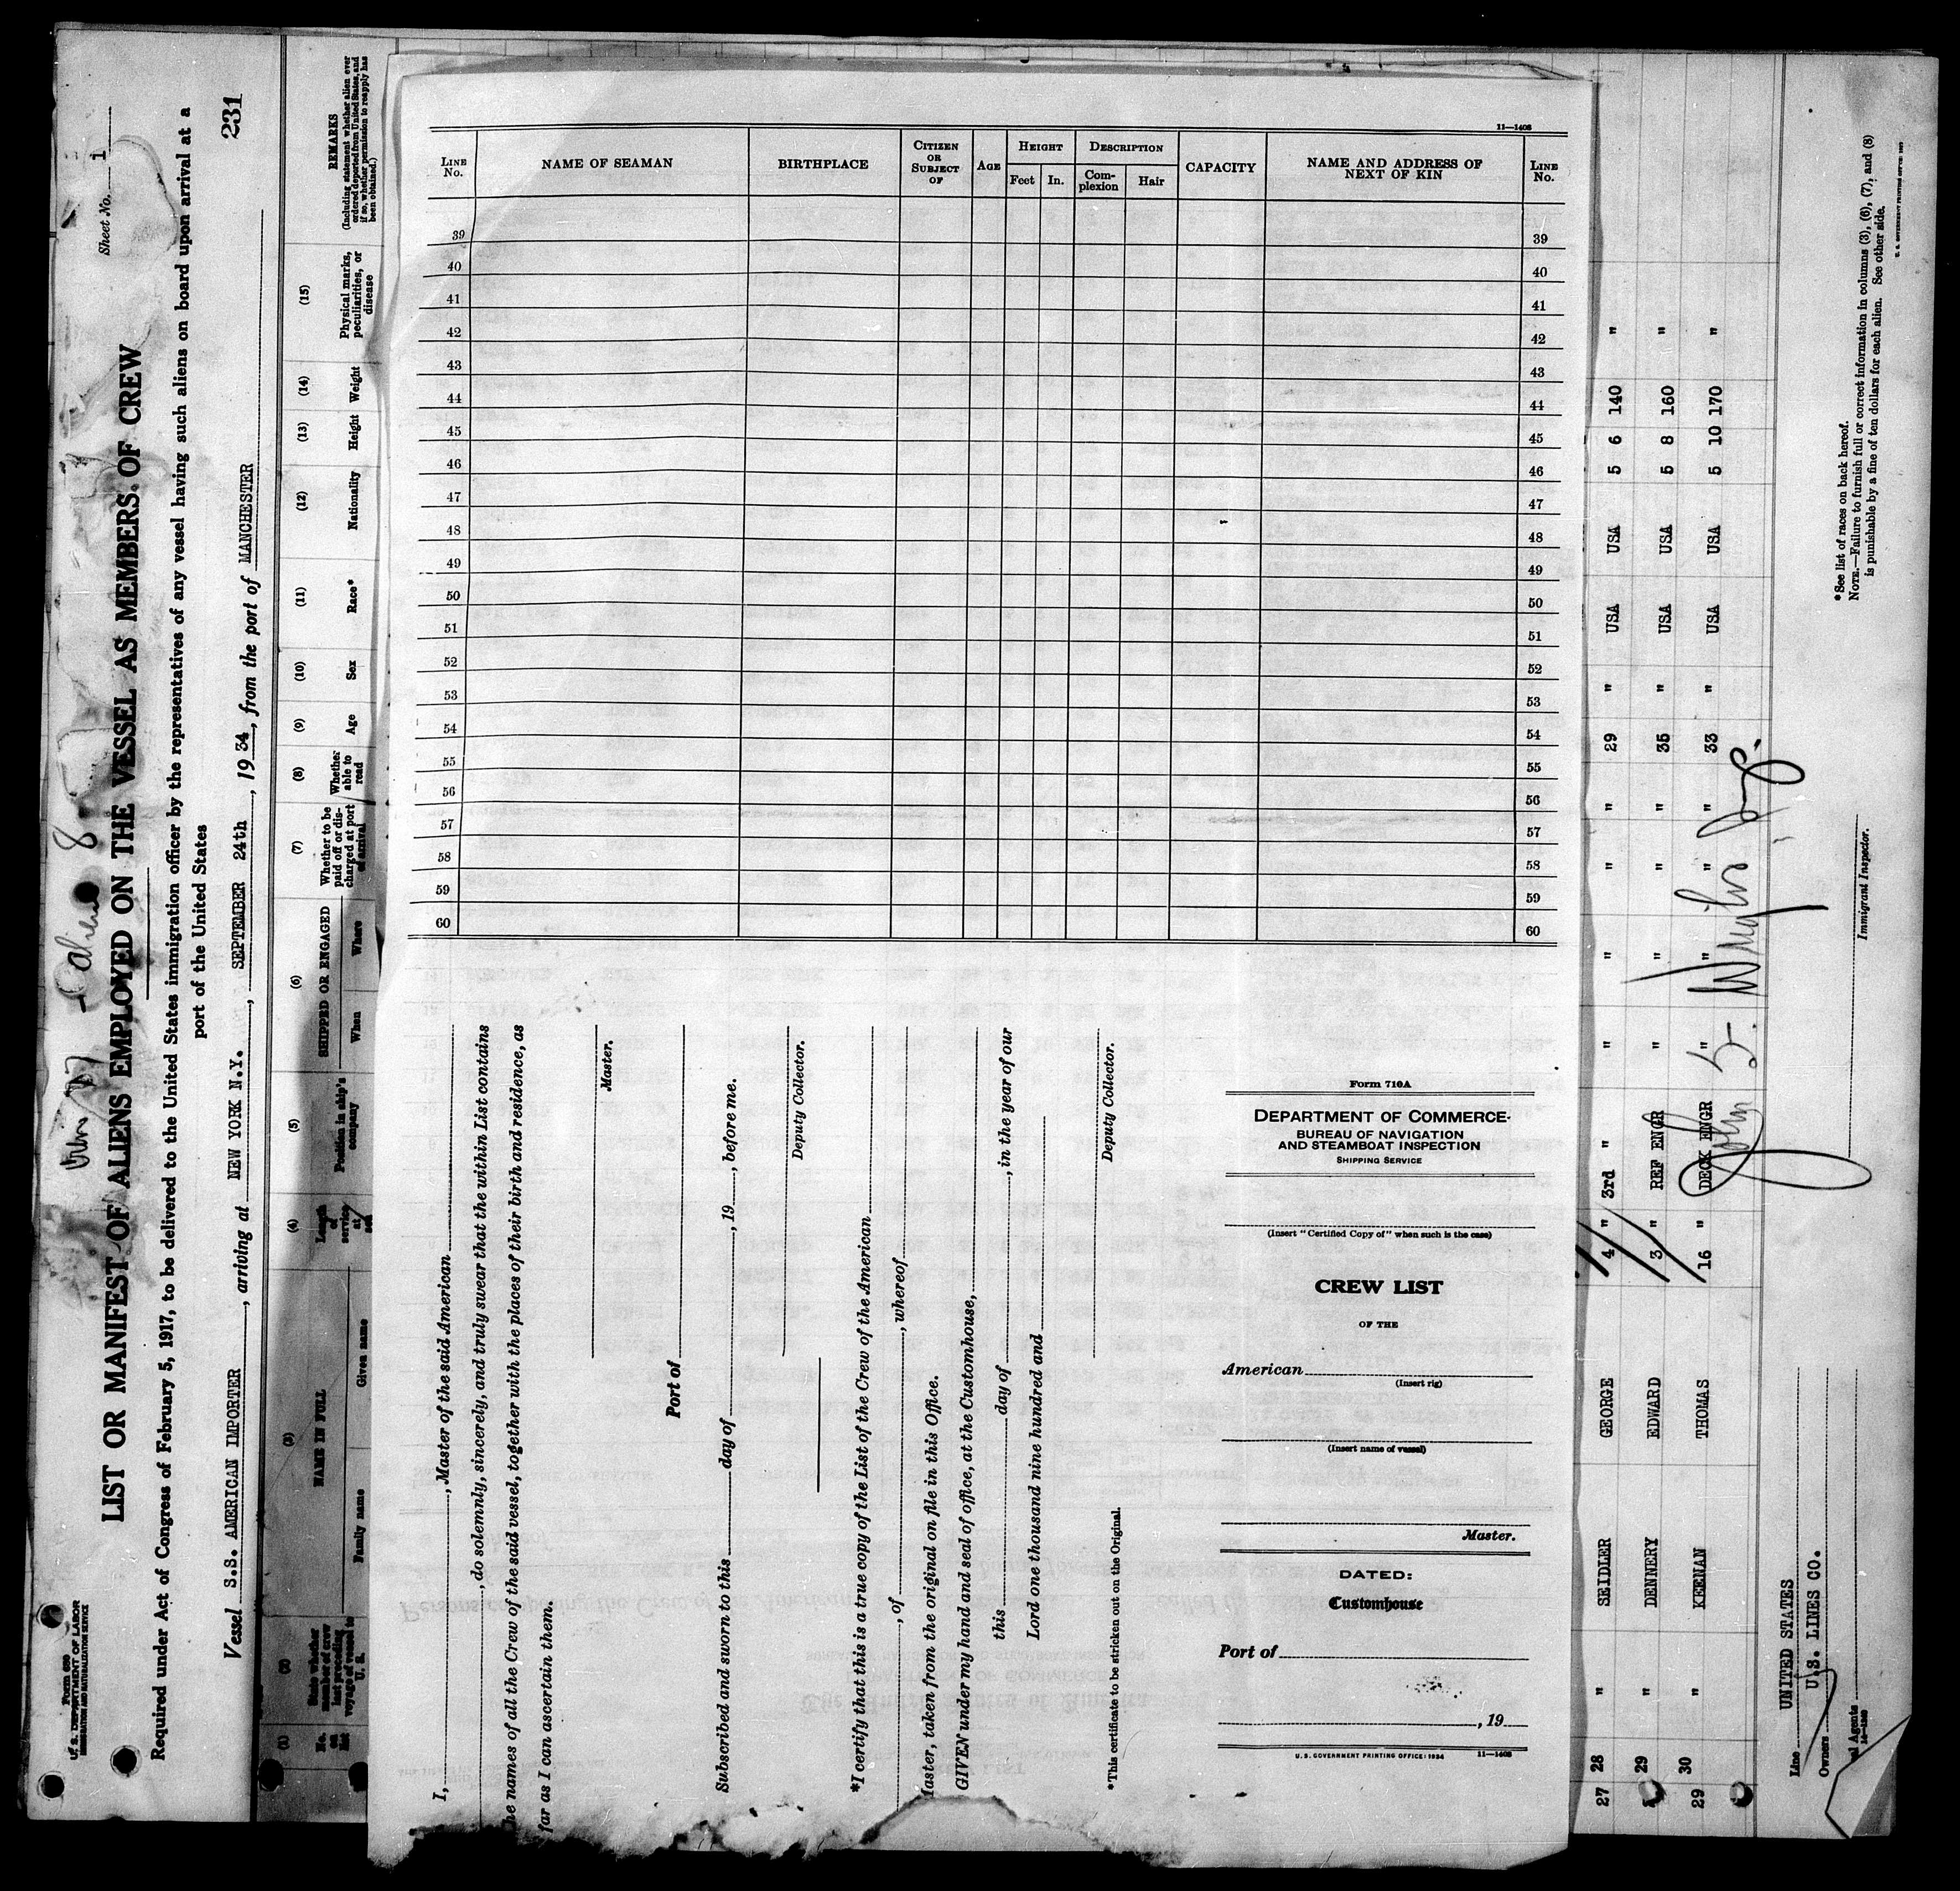 Form 680
U. S. DEPARTMENT OF LABOR
IMMIGRATION AND NATURALIZATION SERVICE
Sheet No. 1
8
LIST OR MANIFEST OF ALIENS EMPLOYED ON THE VESSEL AS MEMBERS OF CREW
Required under Act of Congress of February 5, 1917, to be delivered to the United States immigration officer by the representatives of any vessel having such aliens on board upon arrival at a
port of the United States
231
Vessel S.S. AMERICAN IMPORTER, arriving at NEW YORK N.Y., SEPTEMBER 24th, 1934, from the port of MANCHESTER
(1) (2) (3) (4) (5) (6) (7) (8) (9) (10) (11) (12) (13) (14) (15)
No. on list
State whether member of crew last preceding voyage of vessel to U. S.
NAME IN FULL
Family name Given name
Length of service at sea
Position in ship's company
SHIPPED OR ENGAGED
When Where
Whether to be paid off or discharged at port of arrival
Whether able to read
Age
Sex
Race*
Nationality
Height
Weight
Physical marks, peculiarities, or disease
REMARKS
(Including statement whether alien ever
ordered deported from United States, and
if so, whether permission to reapply has
been obtained.)
11—1408
LINE No. NAME OF SEAMAN BIRTHPLACE CITIZEN OR SUBJECT OF AGE HEIGHT DESCRIPTION CAPACITY NAME AND ADDRESS OF NEXT OF KIN LINE No.
Feet In. Complexion Hair
39 39
40 40
41 41
42 42
43 43
44 44
45 45
46 46
47 47
48 48
49 49
50 50
51 51
52 52
53 53
54 54
55 55
56 56
57 57
58 58
59 59
60 60
I, , Master of the said American
, do solemnly, sincerely, and truly swear that the within List contains
the names of all the Crew of the said vessel, together with the places of their birth and residence, as
far as I can ascertain them.
Master.
Port of
Subscribed and sworn to this day of , 19 , before me.
Deputy Collector.
*I certify that this is a true copy of the List of the Crew of the American
, of , whereof
Master, taken from the original on file in this Office.
GIVEN under my hand and seal of office, at the Customhouse,
this day of , in the year of our
Lord one thousand nine hundred and
Deputy Collector.
*This certificate to be stricken out on the Original.
Form 710A
DEPARTMENT OF COMMERCE
BUREAU OF NAVIGATION
AND STEAMBOAT INSPECTION
SHIPPING SERVICE
(Insert "Certified Copy of" when such is the case)
CREW LIST
OF THE
American
(Insert rig)
(Insert name of vessel)
Master.
DATED:
Customhouse
Port of
, 19
U. S. GOVERNMENT PRINTING OFFICE: 1934 11—1408
27 28 " SEIDLER GEORGE 4 " 3rd " " " " " 29 " USA USA 5 6 140 "
29 " DENNERY EDWARD 3 " REF ENGR " " " " 35 " USA USA 5 8 160 "
29 30 " KEENAN THOMAS 16 " DECK ENGR " " " " 33 " USA USA 5 10 170 "
Line UNITED STATES
Owners U.S. LINES CO.
al Agents
14—1240
Immigrant Inspector.
*See list of races on back hereof.
NOTE.—Failure to furnish full or correct information in columns (3), (6), (7), and (8)
is punishable by a fine of ten dollars for each alien. See other side.